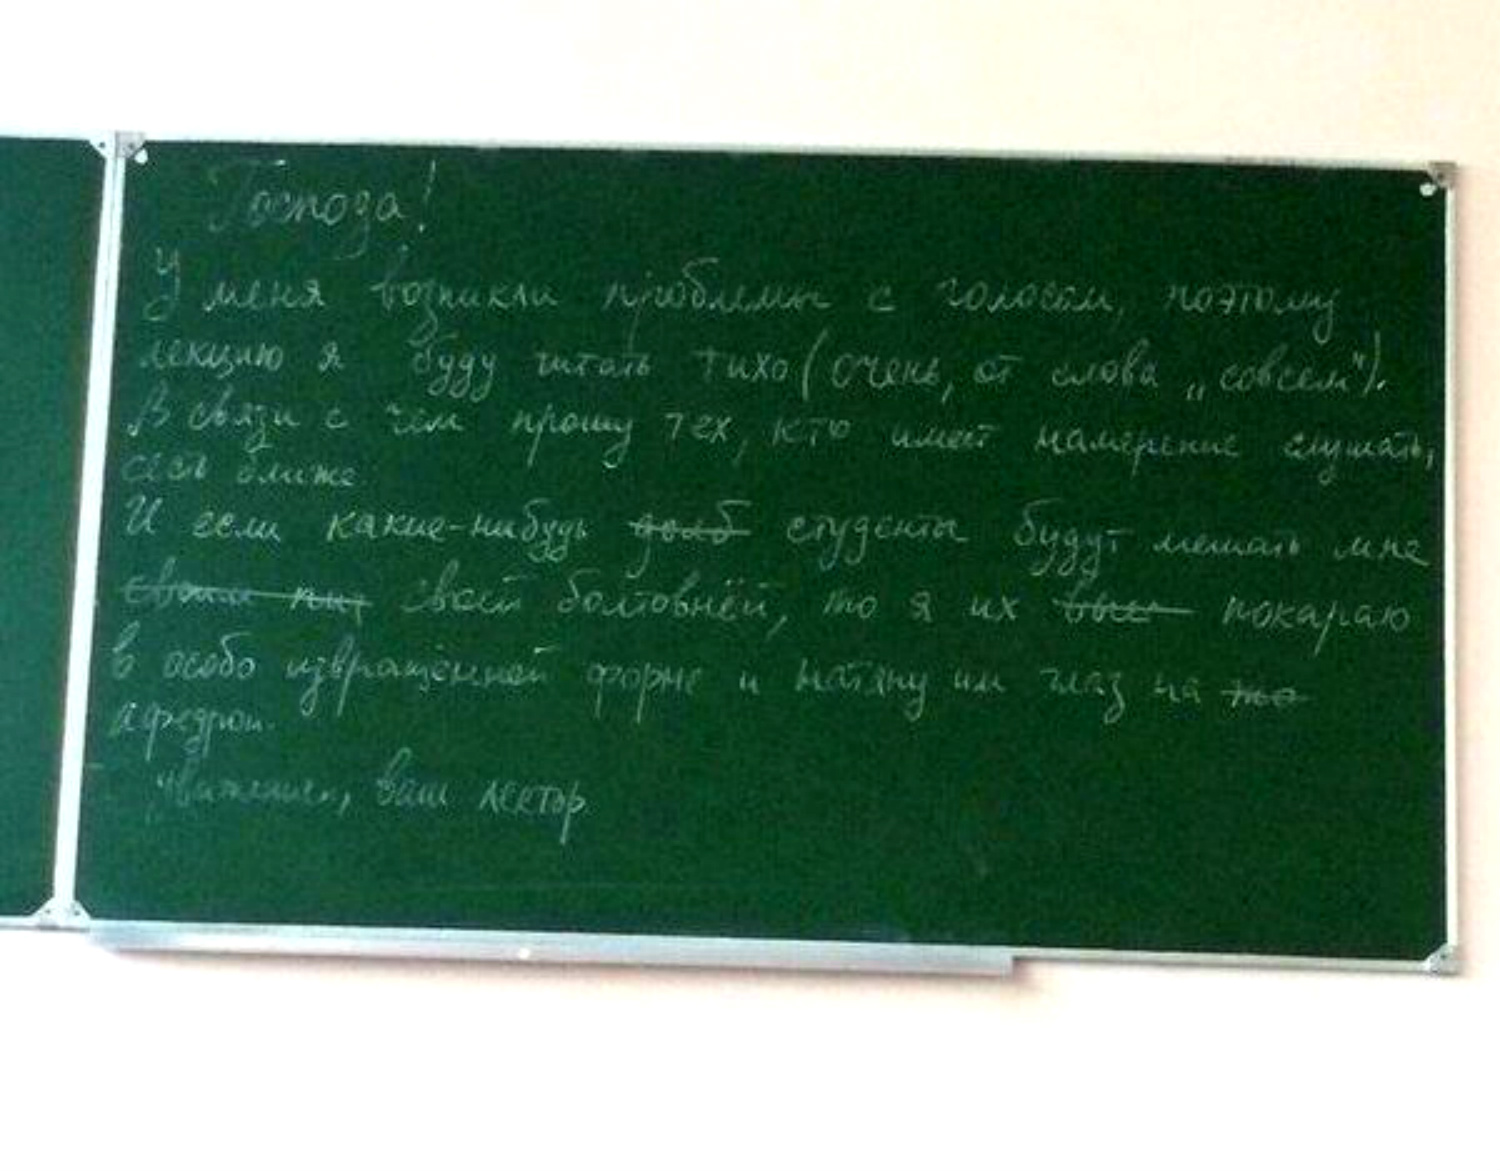 Господа!
У меня возникли проблемы с голосом, поэтому
лекцию я буду читать тихо (очень, от слова „совсем").
В связи с чем прошу тех, кто имеет намерение слушать,
сесть ближе.
И если какие-нибудь долб студенты будут мешать мне
своим своей болтовнёй, то я их покараю
в особо извращённой форме и натяну им глаз на
афедрон.
ваш лектор